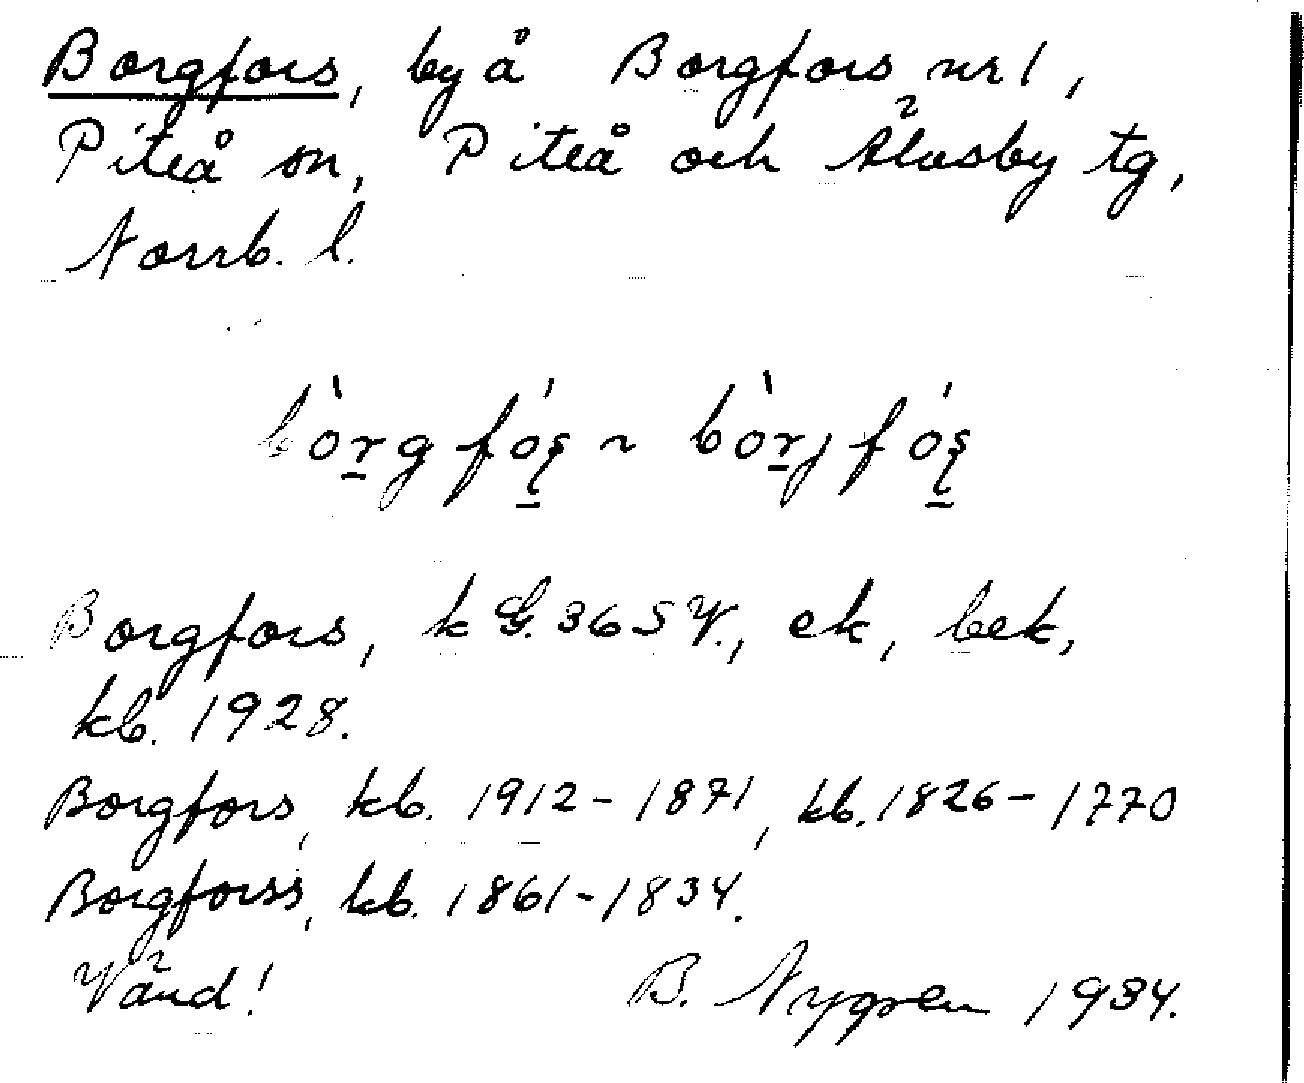 Borgfors, by å Borgfors nr 1,
Piteå sn, Piteå och Älvsby tg,
Norrb. l.
bòrgfós ~ bòrjfós
Borgfors, k G. 365 V., ek, bek,
kb. 1928.
Borgfors, kb. 1912-1871, kb. 1826-1770
Borgforss, kb. 1861-1834.
Vänd! B. Nygren 1934.